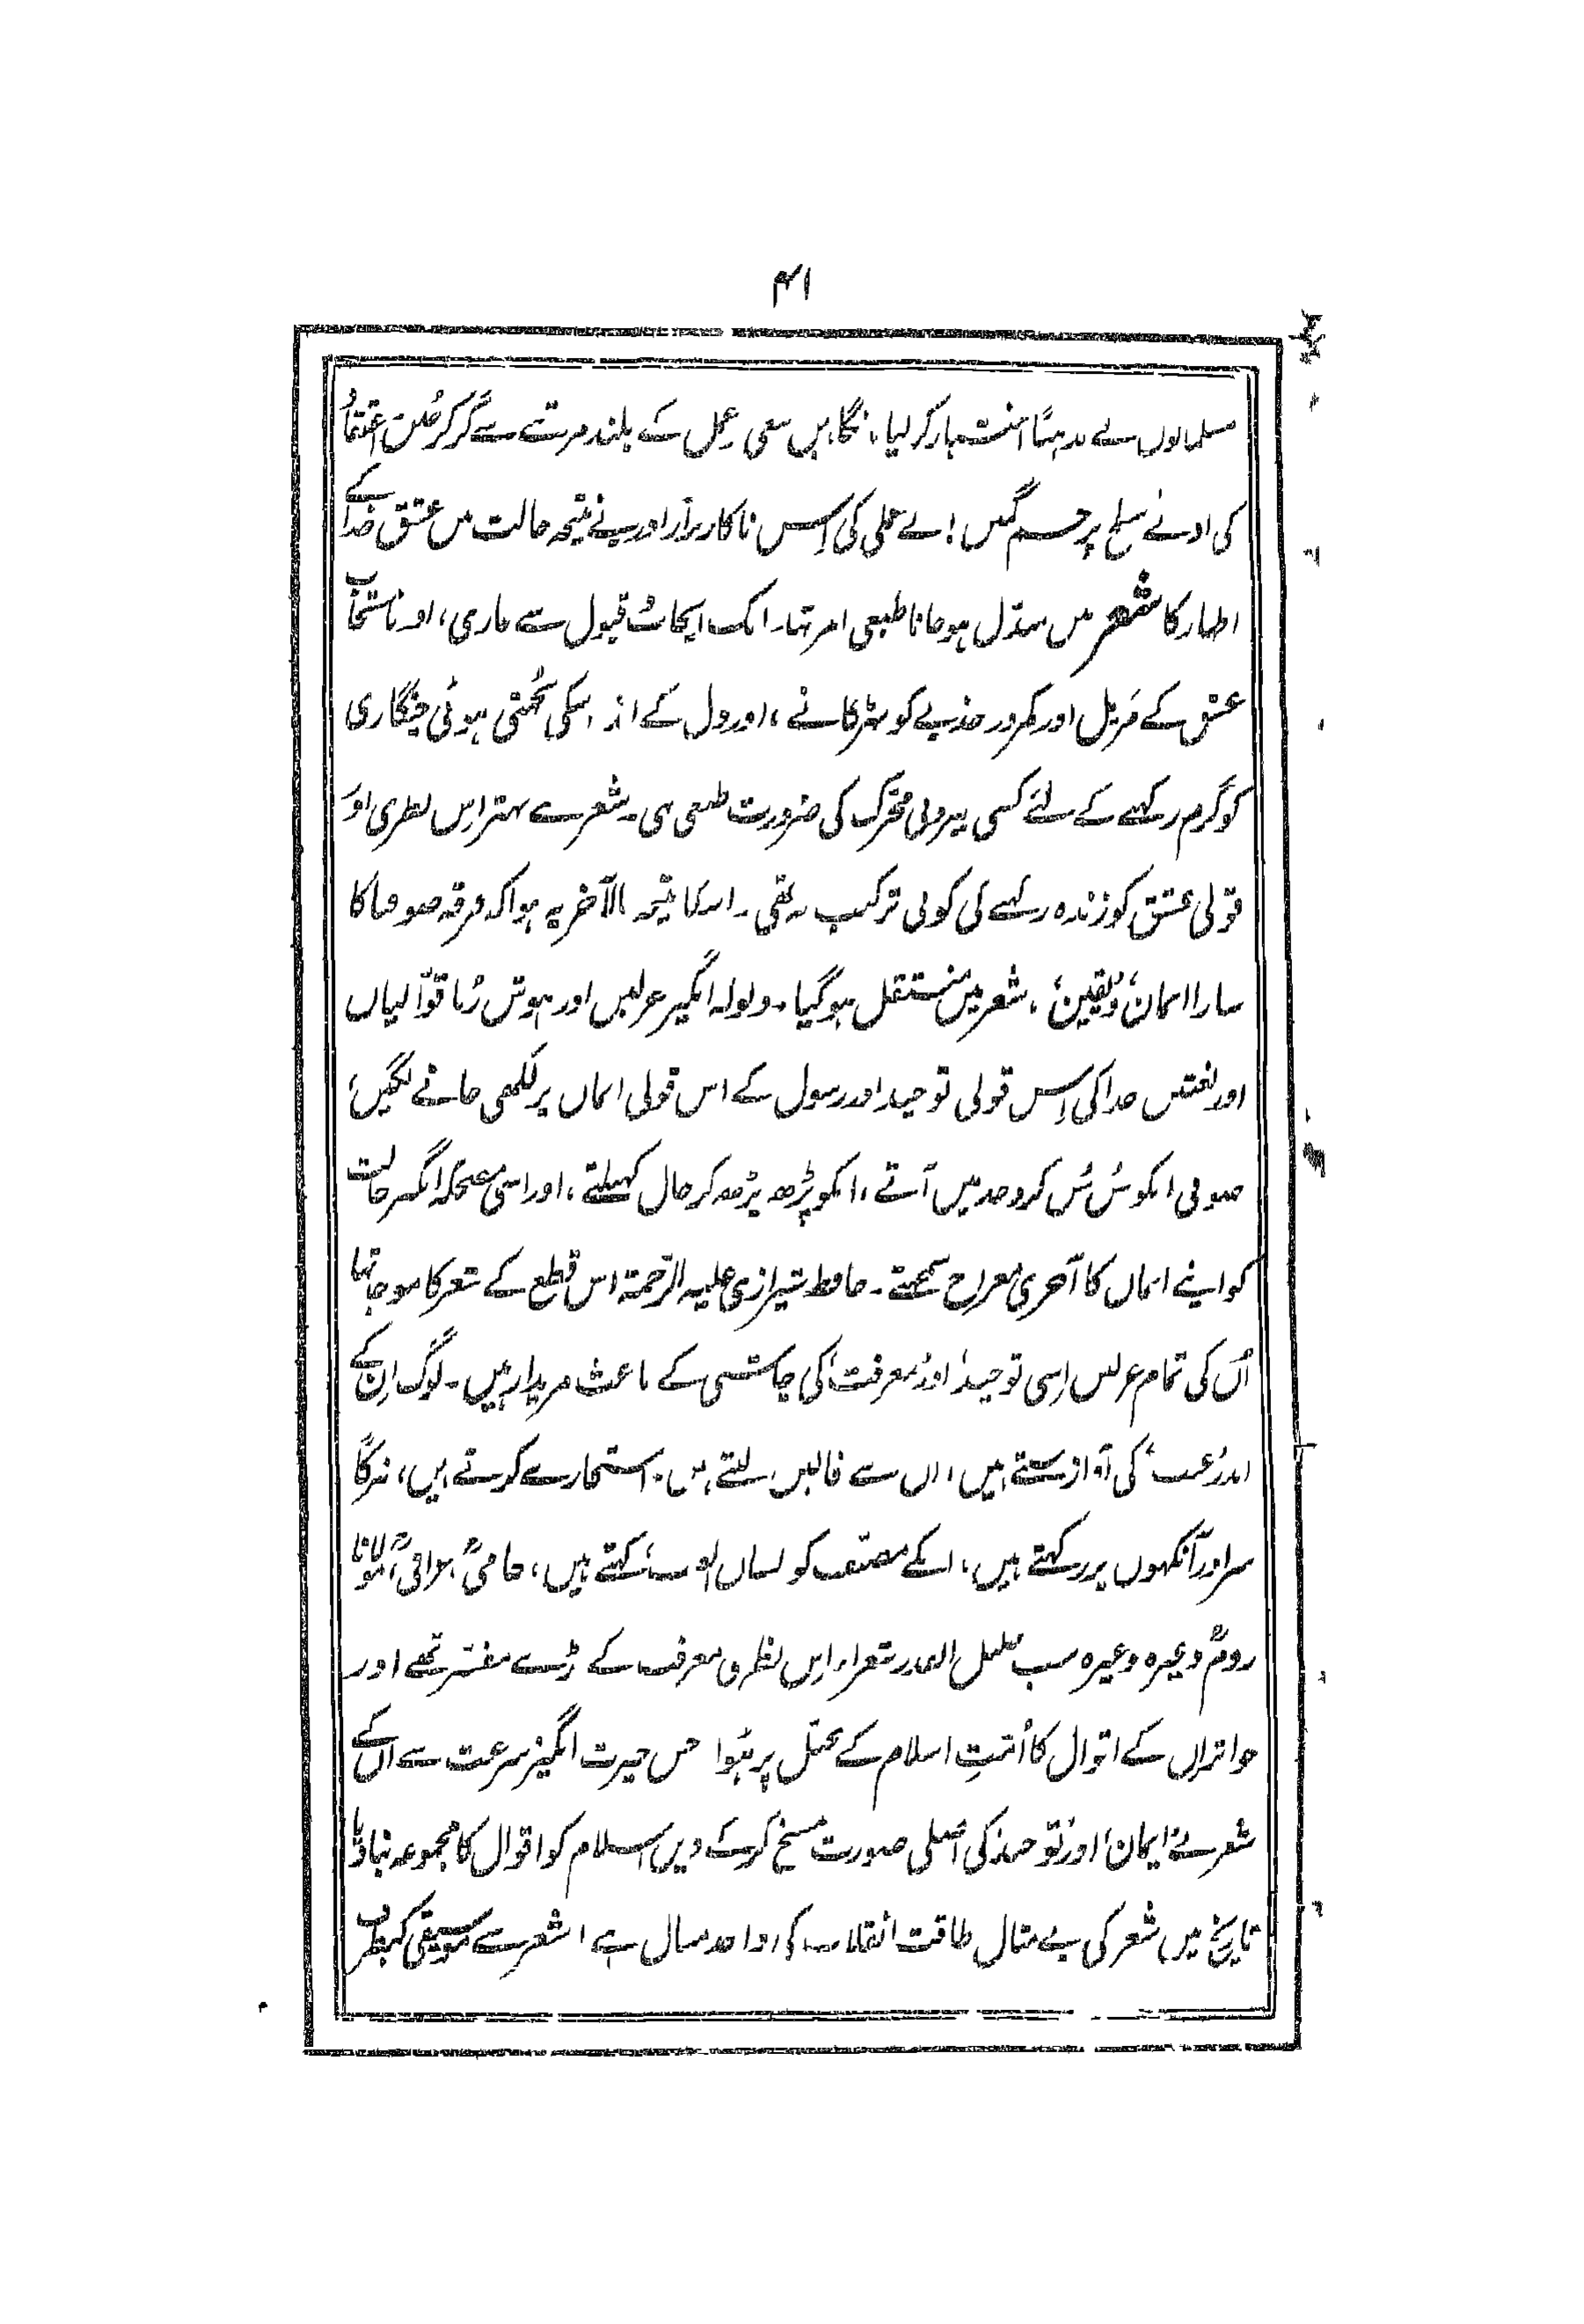 ۴۱
مسلمانوں نے مذہبًا اختیار کر لیا، نگاہیں سعی و عمل کے بلند مرتبے سے گر کر حُسنِ اعتقاد
کی ادنےٰ سطح پر جم گئیں! بے عملی کی اِس ناکار برآر اور بے نتیجہ حالت میں عشق خدا کے
اظہار کا شعر میں مبدّل ہو جانا طبعی امر تھا۔ ایک ایجاب و قبول سے عاری، اور نامستجاب
عشق کے مَریل اور کمزور جذبے کو بھڑکانے، اور دل کے اندر اسکی بُجھتی ہوئی چنگاری
کو گرم رکھنے کے لئے کسی بیرونی محرّک کی ضرورت طبعی تھی۔ شعر سے بہتر اِس نظری اور
قولی عشق کو زندہ رکھنے کی کوئی ترکیب نہ تھی۔ اسکا نتیجہ بالآخر یہ ہوا کہ فرقہ صوفیا کا
سارا 'ایمان' و 'یقین'، شعر میں منتقل ہو گیا۔ ولولہ انگیز غزلیں اور ہوش رُبا قوّالیاں
اور نعتیں خدا کی اِس قولی توحید اور رسول کے اس قولی ایماں پر لکھی جانے لگیں،
صوفی انکو سُن سُن کر وجد میں آتے، انکو پڑھ پڑھ کر حال کھیلتے، اور اسی مضحکہ انگیز حالت
کو اپنے ایماں کا آخری معراج سمجھتے۔ حافظ شیرازی علیہ الرّحمۃ اس قطع کے شعر کا موجد تھا
اُس کی تمام غزلیں اِسی 'توحید' اور 'معرفت' کی چاشنی کے باعث مزیدار ہیں۔ لوگ اِن کے
اندر 'غیب' کی آواز سنتے ہیں، ان سے فالیں لیتے ہیں۔ استخارے کرتے ہیں، تبرکًا
سر اور آنکھوں پر رکھتے ہیں، اسکے مصنّف کو 'لسان الغیب' کہتے ہیں، جامیؒ، عراقیؒ، مولانا
رومؒ وغیرہ وغیرہ سب جلیل القدر شعراء اِس نظری معرفت کے بڑے مفسّر تھے اور
جو اثر اں کے اقوال کا اُمّتِ اسلام کے تخیّل پر ہُوا جس حیرت انگیز سرعت سے اُن کے
شعر نے 'ایمان' اور 'توحید' کی اصلی صورت مسخ کر کے دینِ اسلام کو اقوال کا مجموعہ بنا دیا
تاریخ میں شعر کی بے مثال طاقت انقلاب کی واحد مثال ہے! شعر سے موسیقی کیطرف